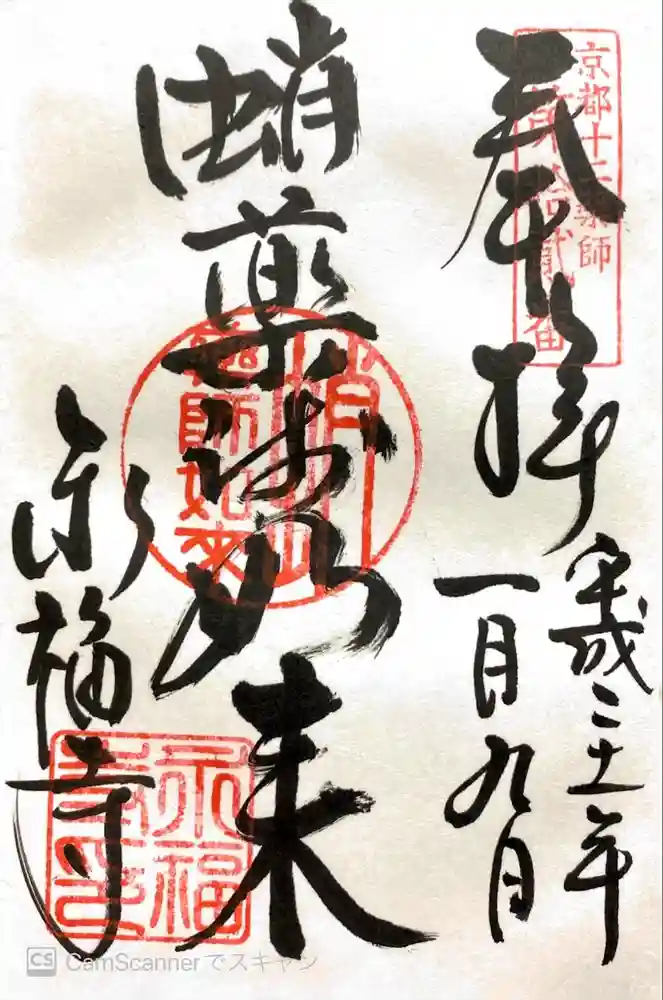 京都十二薬師
第拾貳番
奉拝
平成二十一年
一月九日
蛸薬師如来
蛸
薬師如来
永福寺
永福
寺印
CS CamScannerでスキャン